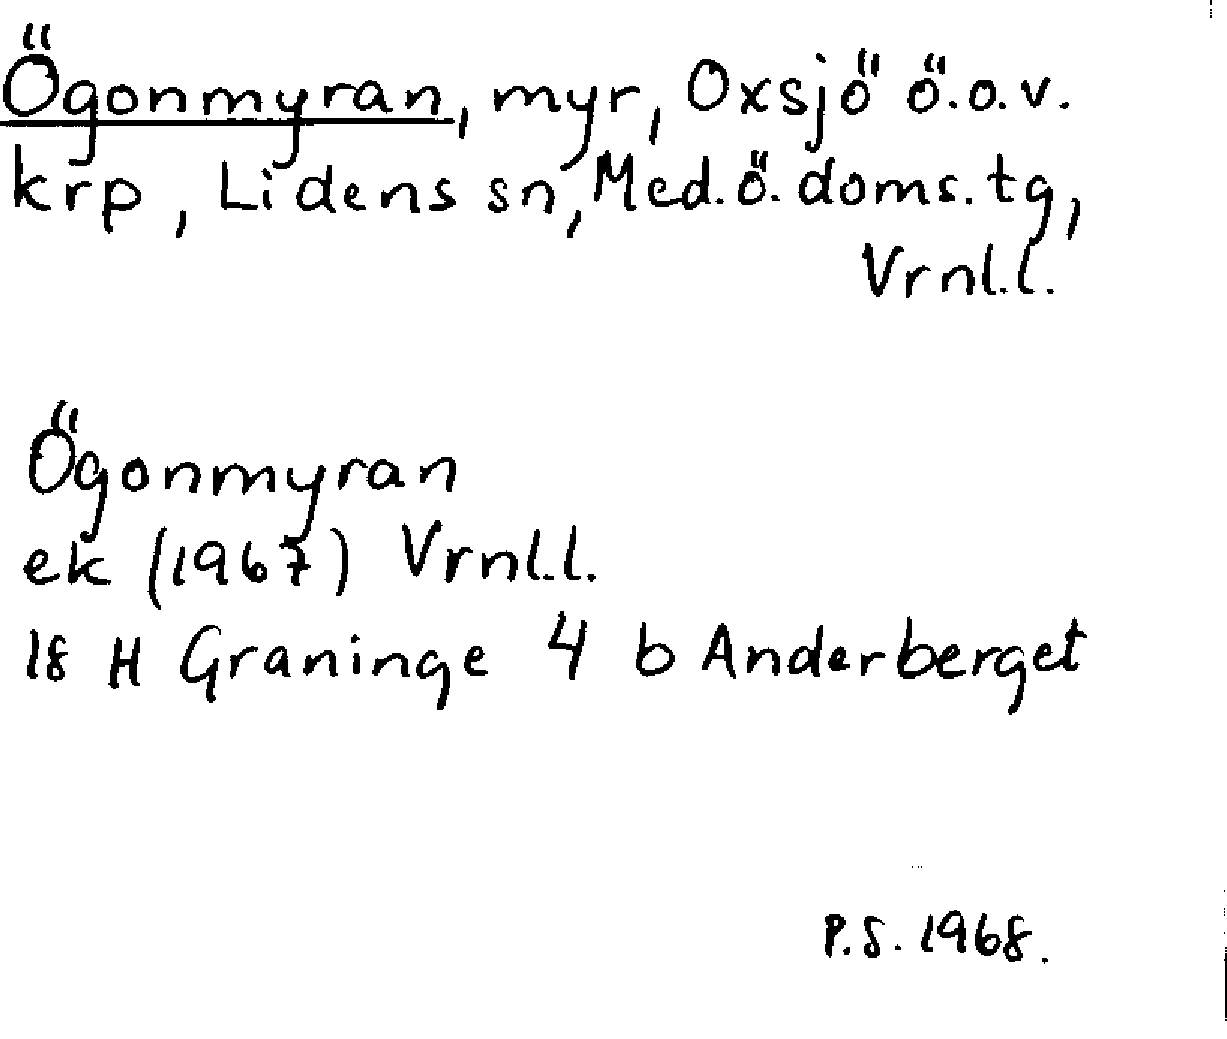 Ögonmyran, myr, Oxsjö ö.o.v.
krp, Lidens sn, Med.ö. doms.tg,
Vrnl.l.
Ögonmyran
ek (1967) Vrnl.l.
18 H Graninge 4 b Anderberget
P.S. 1968.